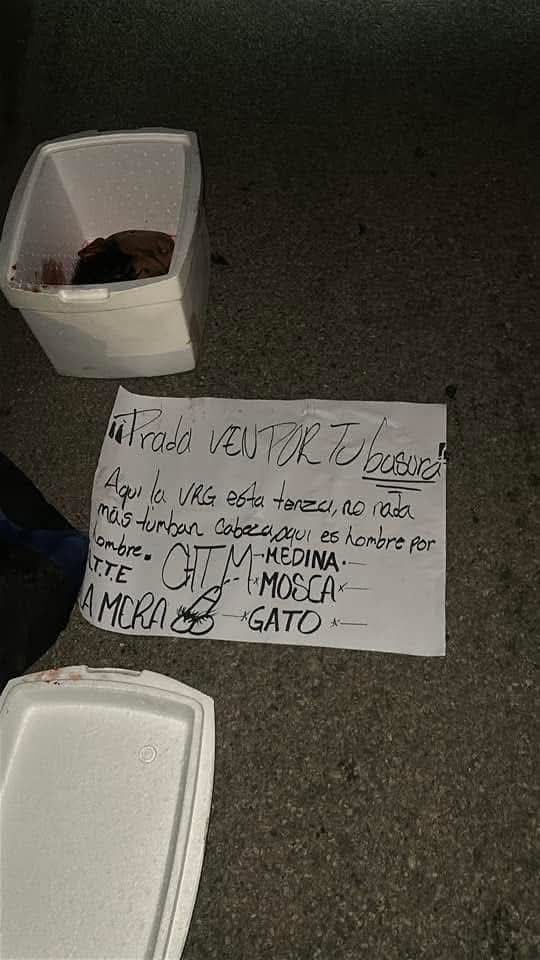 ¡¡Prada VEN POR TU basura!!
Aqui la VRG esta tenza, no nada
más tumban cabeza,aqui es hombre por
hombre.
A.T.T.E CHTM -MEDINA.-
*MOSCA*-
LA MORA -*GATO *-